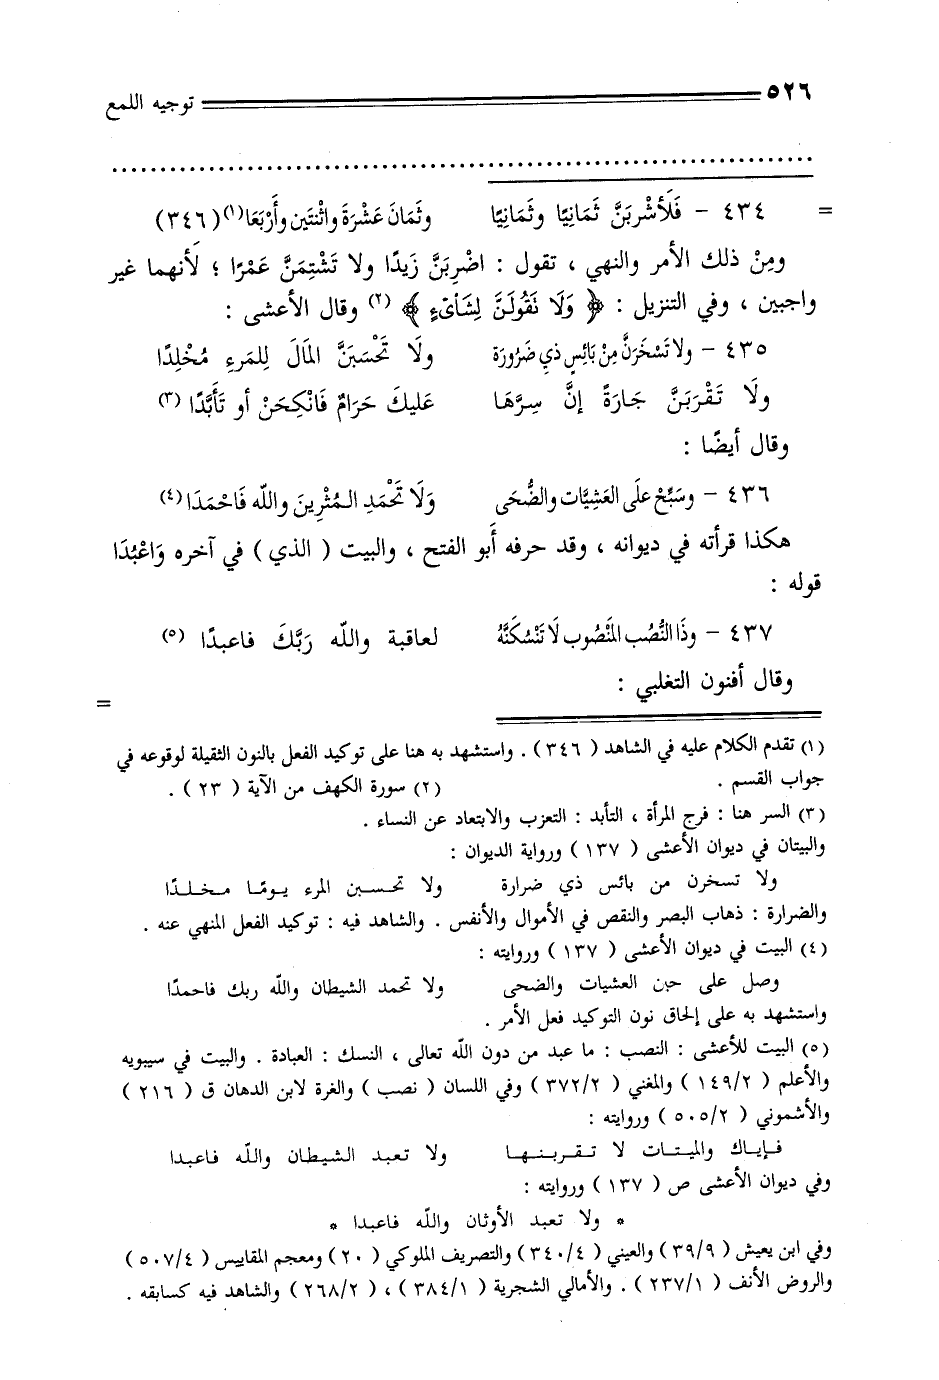 ٥٢٦ توجيه اللمع
= ٤٣٤ - فَلَأَشْرَبَنَّ ثَمَانِيًا وثَمَانِيًا وثَمَانَ عَشْرَةَ واثْنَتَين وأَرْبَعَا(١)(٣٤٦)
ومِنْ ذلك الأمر والنهي ، تقول : اضْرِبَنَّ زَيدًا ولا تَشْتِمَنَّ عَمْرًا ؛ لأنهما غير
واجبين ، وفي التنزيل : ﴿ وَلَا نَقُولَنَّ لِشَاْىْءٍ ﴾ (٢) وقال الأعشى :
٤٣٥ - ولا تَسْخَرَنَّ مِنْ بَائِسٍ ذي ضَرُورَة ولَا تَحْسَبَنَّ المَالَ لِلمَرءِ مُخْلِدًا
ولَا تَقْرَبَنَّ جَارَةً إنَّ سِرَّهَا عَليكَ حَرَامٌ فَانْكِحَنْ أو تَأَبَّدًا (٣)
وقال أيضًا :
٤٣٦ - وسَبِّحْ علَى العَشِيَّات والضُّحَى وَلَا تَحْمَدِ المُثْرِينَ واللّه فَاحْمَدَا (٤)
هكذا قرأته في ديوانه ، وقد حرفه أَبو الفتح ، والبيت ( الذي ) في آخره وَاعْبُدَا
قوله :
٤٣٧ - وذَا النُّصُب المَنْصُوب لَا تَنْسُكَنَّهُ لعاقبة واللّه رَبَّكَ فاعبدًا (٥)
وقال أفنون التغلبي :
=
(١) تقدم الكلام عليه في الشاهد ( ٣٤٦ ) . واستشهد به هنا على توكيد الفعل بالنون الثقيلة لوقوعه في
جواب القسم . (٢) سورة الكهف من الآية ( ٢٣ ) .
(٣) السر هنا : فرج المرأة ، التأبد : التعزب والابتعاد عن النساء .
والبيتان في ديوان الأعشى ( ١٣٧ ) ورواية الديوان :
ولا تسخرن من بائس ذي ضرارة ولا تحسبن المرء يومًا مخلدًا
والضرارة : ذهاب البصر والنقص في الأموال والأنفس . والشاهد فيه : توكيد الفعل المنهي عنه .
(٤) البيت في ديوان الأعشى ( ١٣٧ ) وروايته :
وصل على حين العشيات والضحى ولا تحمد الشيطان واللّه ربك فاحمدًا
واستشهد به على إلحاق نون التوكيد فعل الأمر .
(٥) البيت للأعشى : النصب : ما عبد من دون اللّه تعالى ، النسك : العبادة . والبيت في سيبويه
والأعلم ( ١٤٩/٢ ) والمغني ( ٣٧٢/٢ ) وفي اللسان ( نصب ) والغرة لابن الدهان ق ( ٢١٦ )
والأشموني ( ٥٠٥/٢ ) وروايته :
فإياك والميتات لا تقربنها ولا تعبد الشيطان واللّه فاعبدا
وفي ديوان الأعشى ص ( ١٣٧ ) وروايته :
* ولا تعبد الأوثان واللّه فاعبدا *
وفي ابن يعيش ( ٣٩/٩ ) والعيني ( ٣٤٠/٤ ) والتصريف الملوكي ( ٢٠ ) ومعجم المقاييس ( ٥٠٧/٤ )
والروض الأنف ( ٢٣٧/١ ) . والأمالي الشجرية ( ٣٨٤/١ ) ، ( ٢٦٨/٢ ) والشاهد فيه كسابقه .